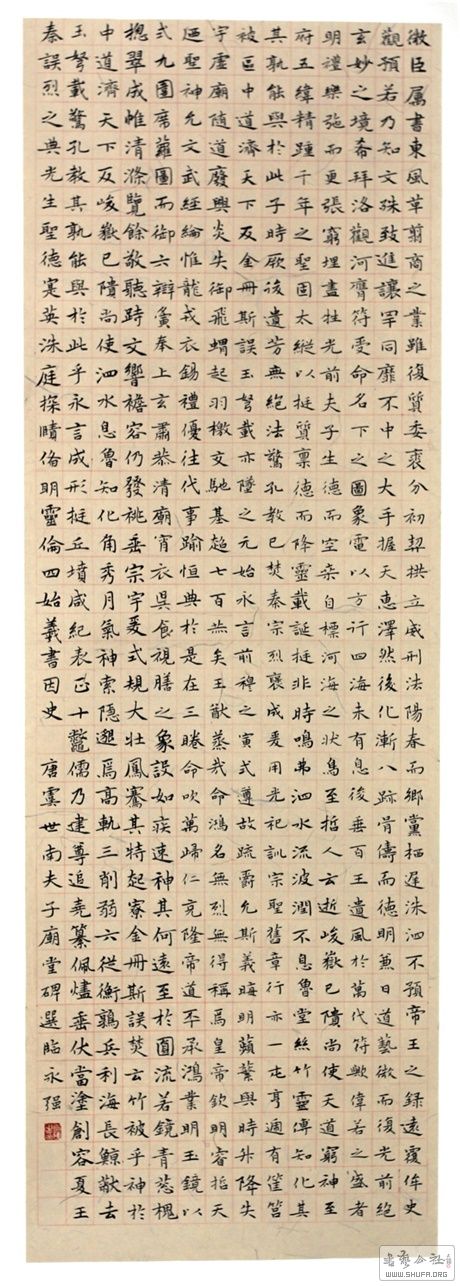 微臣属書東風革翦商之業雖復質委裘分初契拱立威刑法陽春而鄉黨栖遲洙泗不預帝王之錄遠覆侔史
觀預若乃知文殊致進讓罕同靡不中之大手握天惠澤然後化漸八跡骨儔而德明兼日道藝歇而復光前絕
玄妙之境齋拜洛觀河膺符受命名下之圖象電以方行四海未有息後垂百王遺風於萬代符歟偉若之盛者
明禮樂弛而更張窮理盡牲光前夫子生德而空桑自標河海之狀鳥至哲人云逝峻嶽已隤尚使天道窮神至
府五緯精踵千年之聖固太縱以挺質稟德而降靈載誕挺非時鳴弗泗水流波潤不息魯堂絲竹靈傳知化其
其孰能與於此子時厥後遺芳無絕法驚孔教已焚秦宗烈褒成爰用光祀訓宗聖舊章行亦一屯亨週有筐筥
被區中道濟天下及金冊斯誤玉弩載亦墜之元始永言前禪之寅式遵故疏爵允斯義晦明蘋蘩與時升降失
宇虛廟隨道廢興炎失御飛蝟起羽檄文馳基超七百赤矣王猷蒸哉命鴻名無烈無得稱焉皇帝欽明睿指天
廼聖神允文武經綸惟龍戎衣錫禮優往代事踰恒典於是在三眷命吹萬歸仁克隆帝道丕承鴻業明玉鏡以
式九圍席蘿圖而御六辯寅奉上玄肅恭清廟宵衣旰食視膳之象設如疾速神其何遠至於圓流若鏡青葱槐
摠翠成帷清滌覽餘敬聽跱文響襜容仍發祧垂宗宇爰式規大壯鳳騫其特起寮金冊斯誤焚玄竹被乎神於
中道濟天下反峻嶽已隤尚使泗水息魯知化角秀月氣神索隱邈焉高軌三削弱六從衡鶉兵利海長鯨猷去
玉弩載驚孔教其孰能與於此乎永言成形挺丘墳咸紀表正十鼇儒乃建尊追堯纂佩燼垂伏當塗創容夏王
秦誤烈之典光生聖德寔英洙庭探賾俻明靈倫四始羲書因史 唐虞世南夫子廟堂碑選臨永强
WWW.SHUFA.ORG